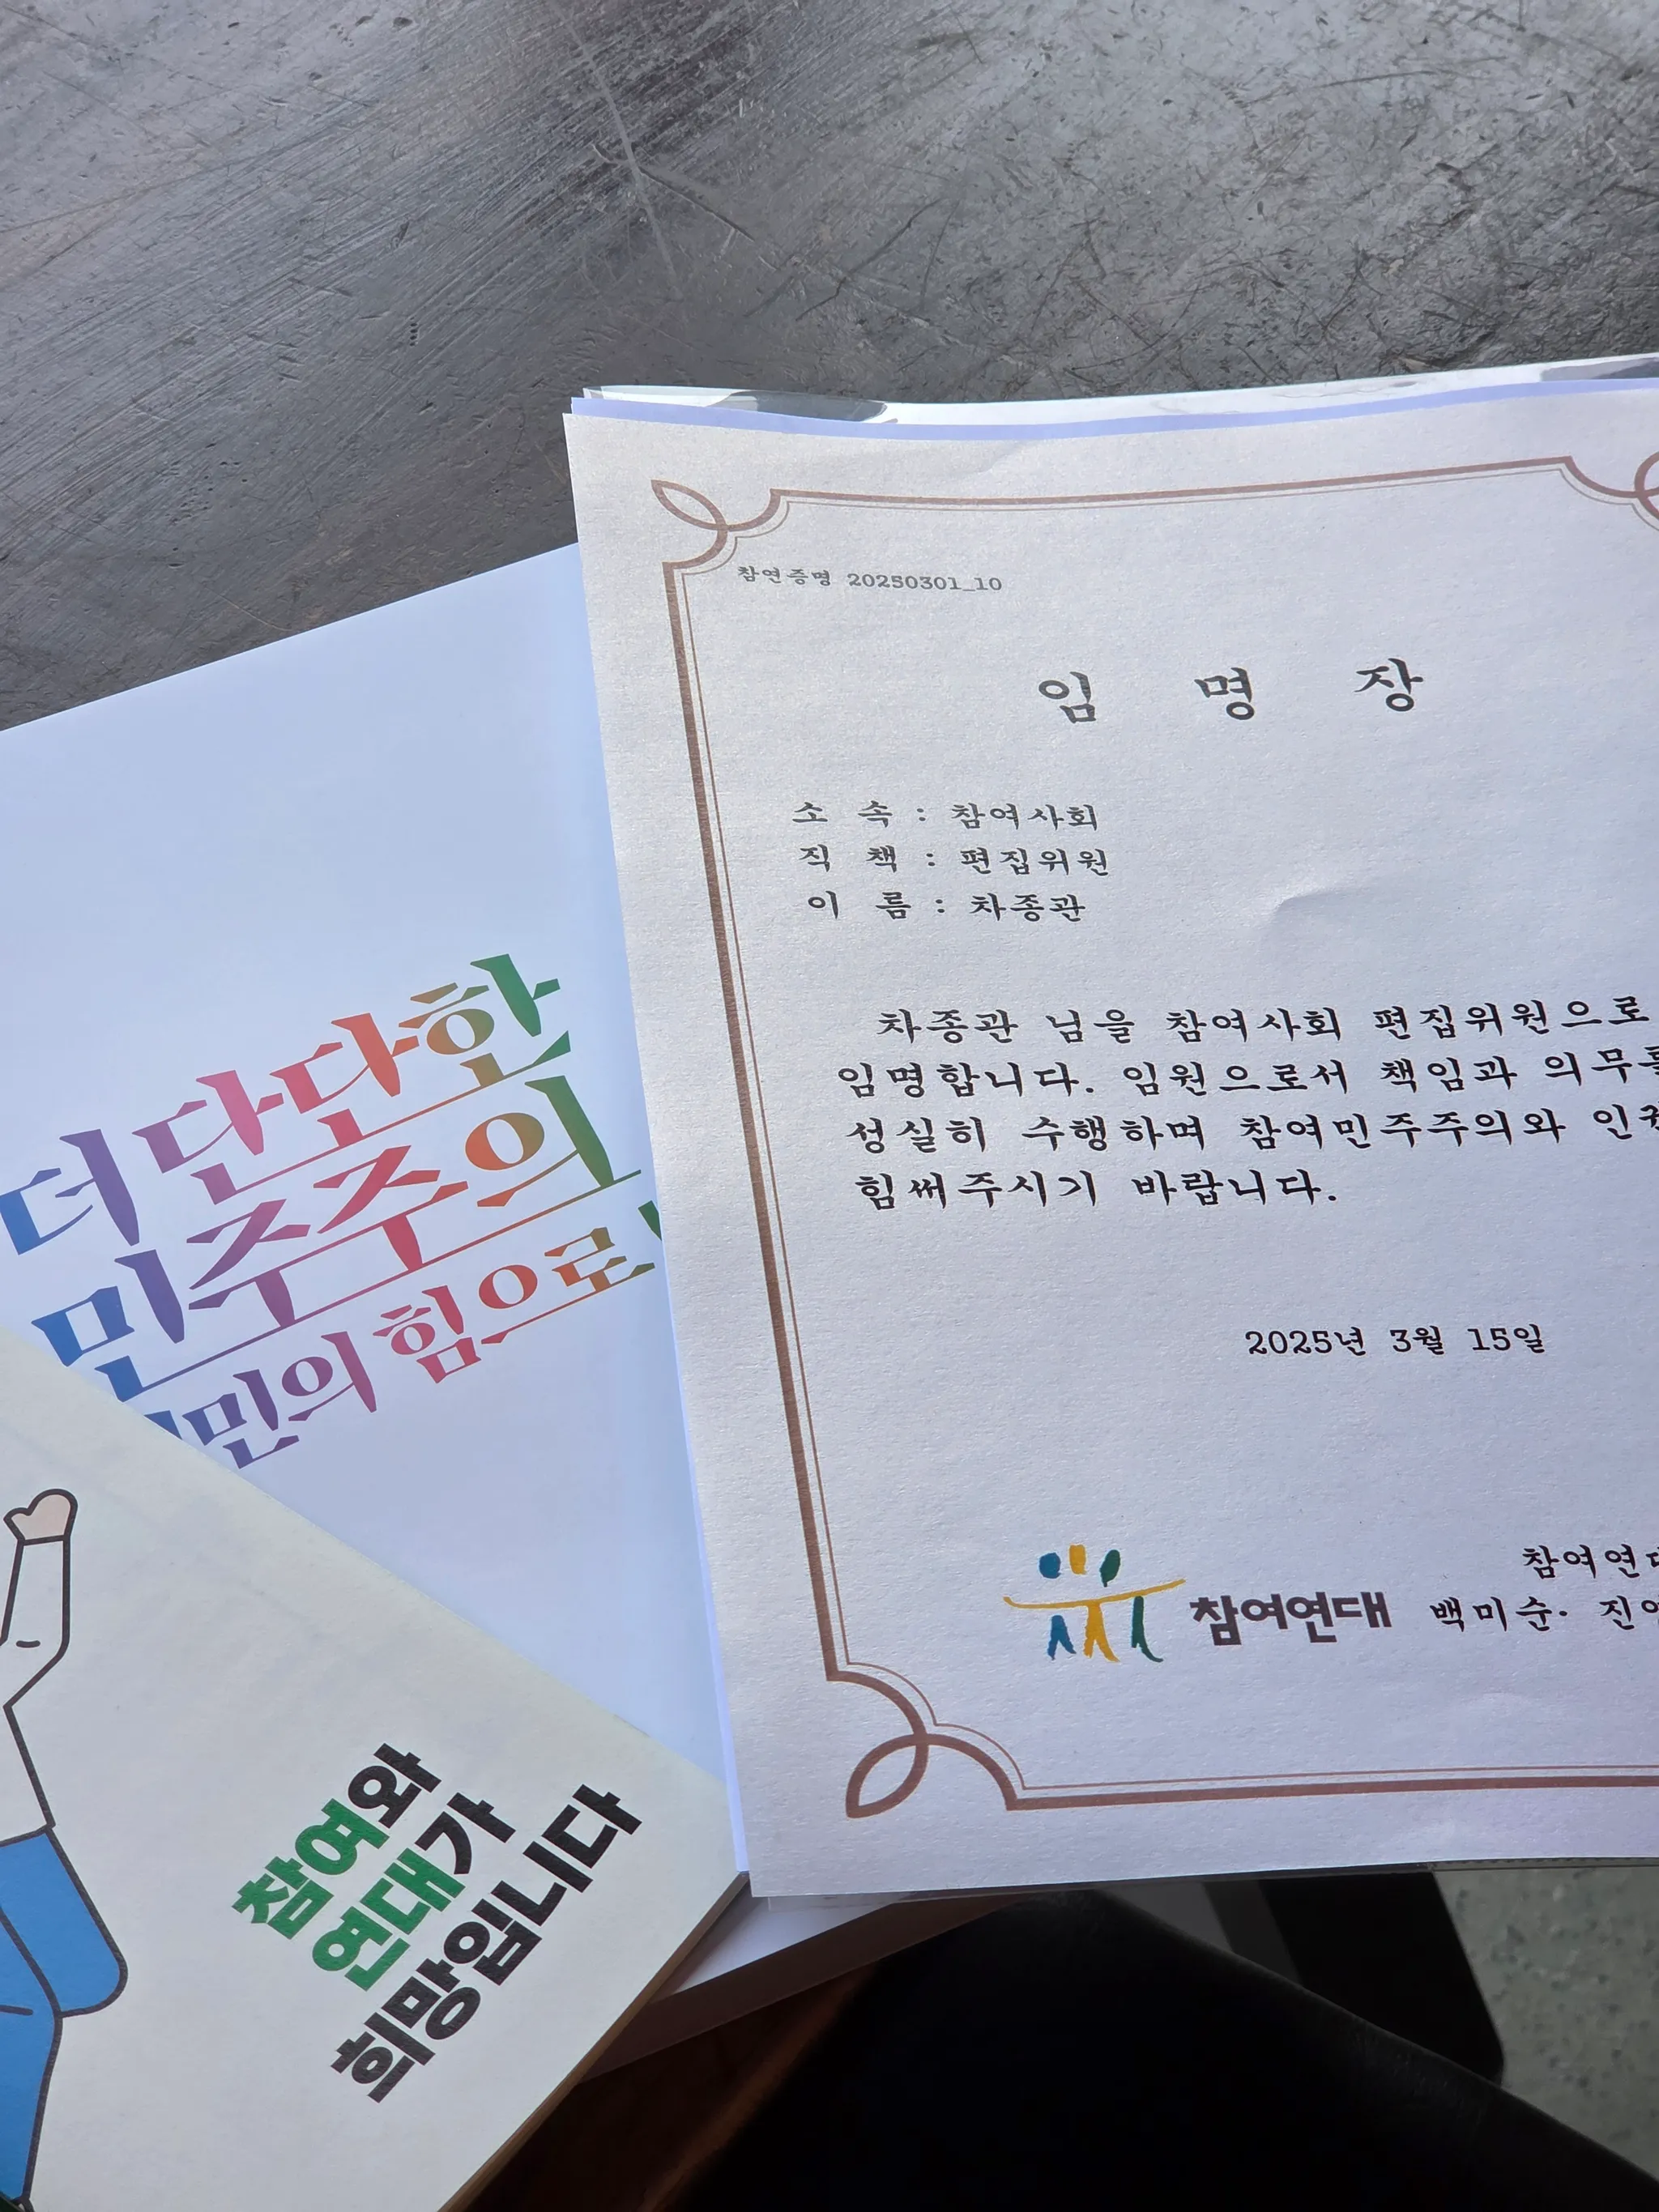 참연증명 20250301_10
임 명 장
소 속 : 참여사회
직 책 : 편집위원
이 름 : 차종관
차종관 님을 참여사회 편집위원으로
임명합니다. 임원으로서 책임과 의무를
성실히 수행하며 참여민주주의와
힘써주시기 바랍니다.
2025년 3월 15일
참여연대
참여연대
백미순· 진
더 단단한
민주주의
시민의 힘으로
참여와
연대가
희망입니다